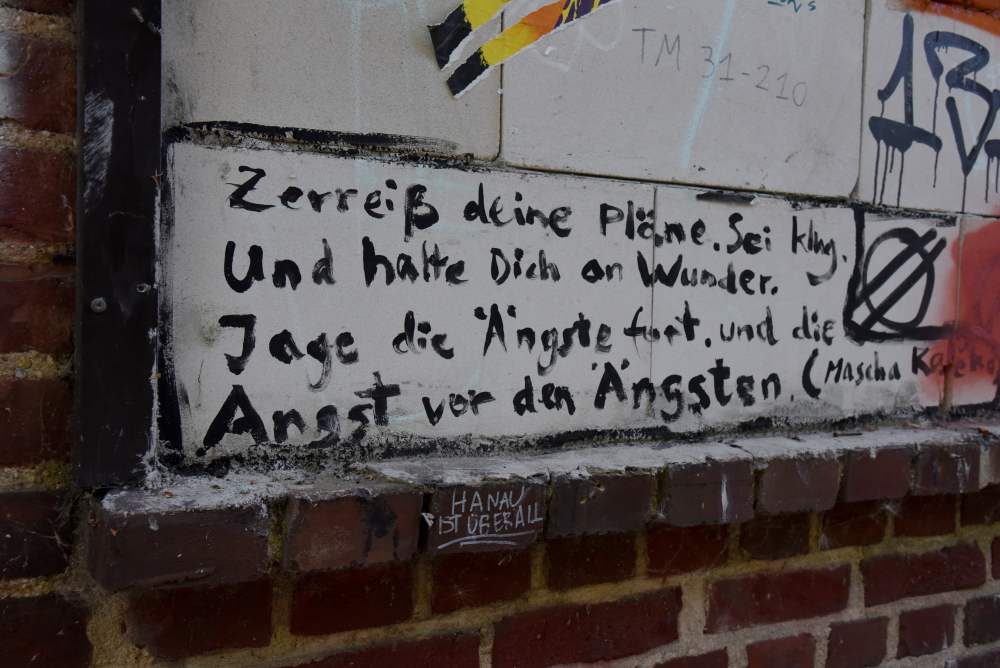 TM 31-210
13
Zerreiß deine Pläne. Sei klug.
Und halte Dich an Wunder.
Jage die Ängste fort, und die
Angst vor den Ängsten. (Mascha Kaléko
HANAU
IST ÜBERALL